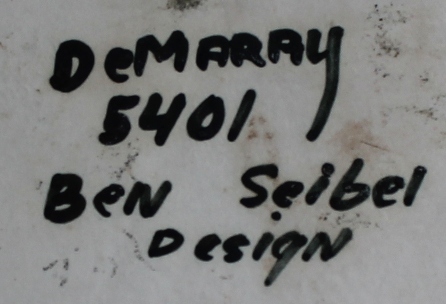 DeMARAY
5401
BeN Seibel
Design